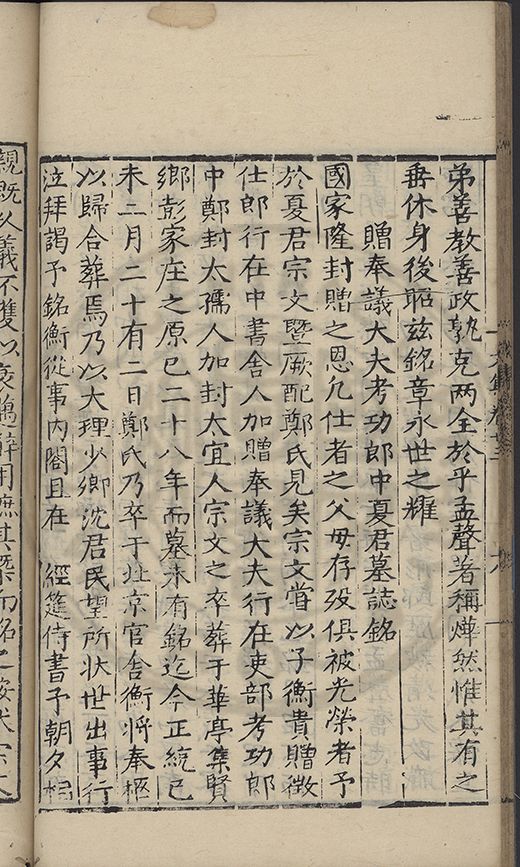 弟善教善政孰克两全於乎孟聲著稱燁然惟其有之
垂休身後昭兹銘章永世之耀
贈奉議大夫考功郎中夏君墓誌銘
國家隆封贈之恩凡仕者之父母存殁俱被光榮者予
於夏君宗文暨厥配鄭氏見矣宗文嘗以子衡貴贈徴
仕郎行在中書舍人加贈奉議大夫行在吏部考功郎
中鄭封太孺人加封太宜人宗文之卒葬于華亭集賢
鄉彭家庄之原已二十八年而墓未有銘迄今正統己
未二月二十有二日鄭氏乃卒于北京官舎衡將奉柩
以歸合葬焉乃以大理少卿沈君民望所狀世出事行
泣拜謁予銘衡從事内閣且在 經筵侍書予朝夕相
親既久義不獲以哀鴻辭用摭其槩而銘之按